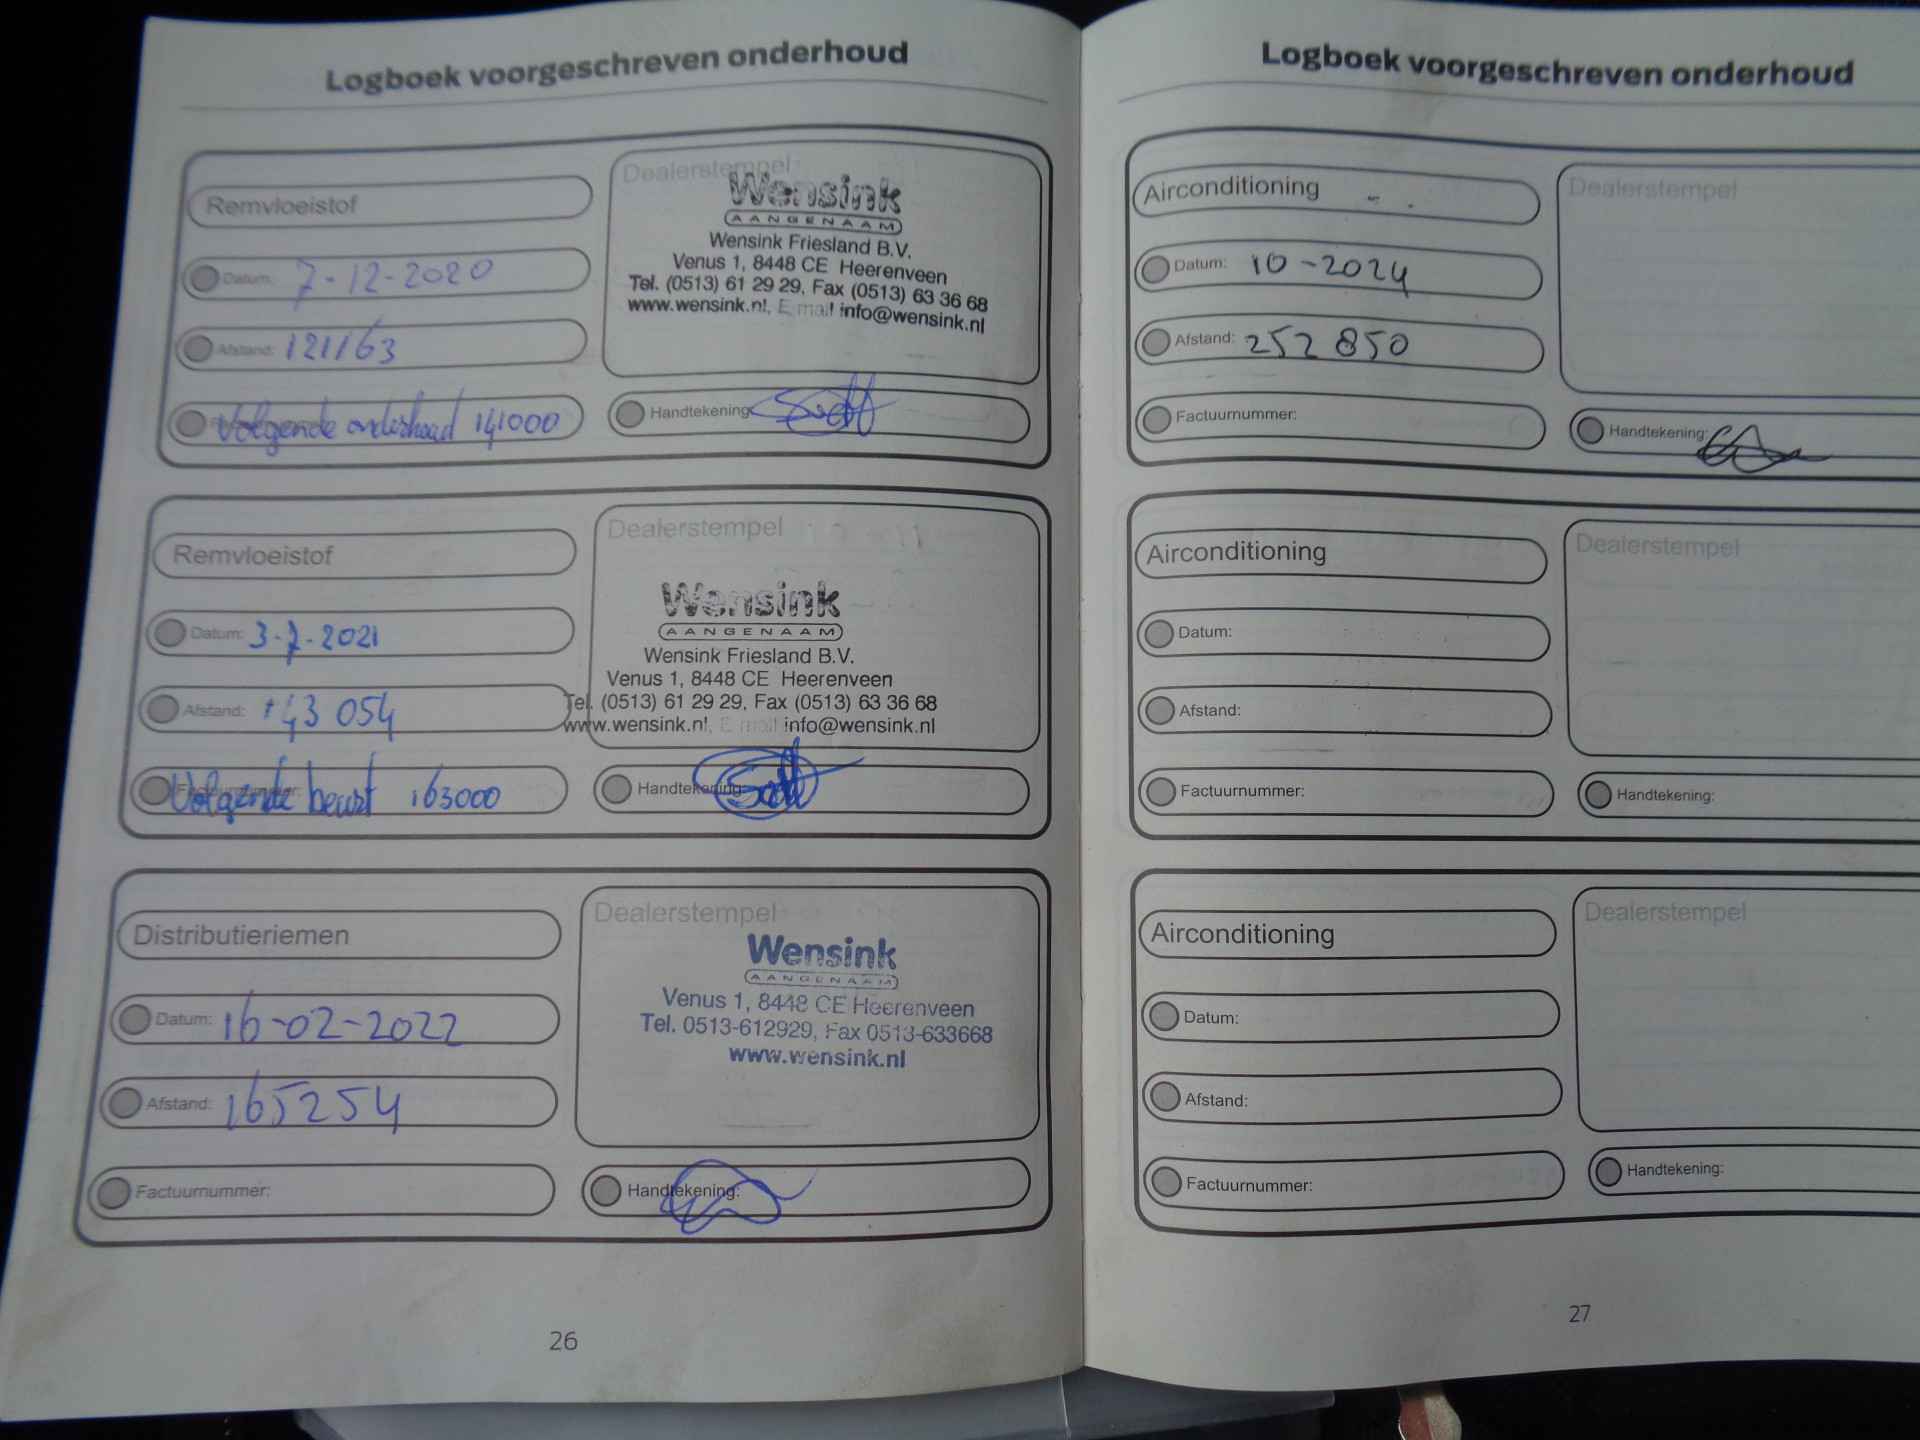 Logboek voorgeschreven onderhoud
Remvloeistof
Datum: 7-12-2020
Afstand: 121163
Volgende onderhoud 141000
Dealerstempel
Wensink
AANGENAAM
Wensink Friesland B.V.
Venus 1, 8448 CE Heerenveen
Tel. (0513) 61 29 29, Fax (0513) 63 36 68
www.wensink.nl, E mail info@wensink.nl
Handtekening:
Remvloeistof
Datum: 3-7-2021
Afstand: 143 054
Factuurnummer: Volgende beurt 163000
Dealerstempel
Wensink
AANGENAAM
Wensink Friesland B.V.
Venus 1, 8448 CE Heerenveen
Tel. (0513) 61 29 29, Fax (0513) 63 36 68
www.wensink.nl, E mail info@wensink.nl
Handtekening:
Distributieriemen
Datum: 16-02-2022
Afstand: 165254
Factuurnummer:
Dealerstempel
Wensink
AANGENAAM
Venus 1, 8448 CE Heerenveen
Tel. 0513-612929, Fax 0513-633668
www.wensink.nl
Handtekening:
26
Logboek voorgeschreven onderhoud
Airconditioning
Datum: 10-2024
Afstand: 252 850
Factuurnummer:
Dealerstempel
Handtekening:
Airconditioning
Datum:
Afstand:
Factuurnummer:
Dealerstempel
Handtekening:
Airconditioning
Datum:
Afstand:
Factuurnummer:
Dealerstempel
Handtekening:
27